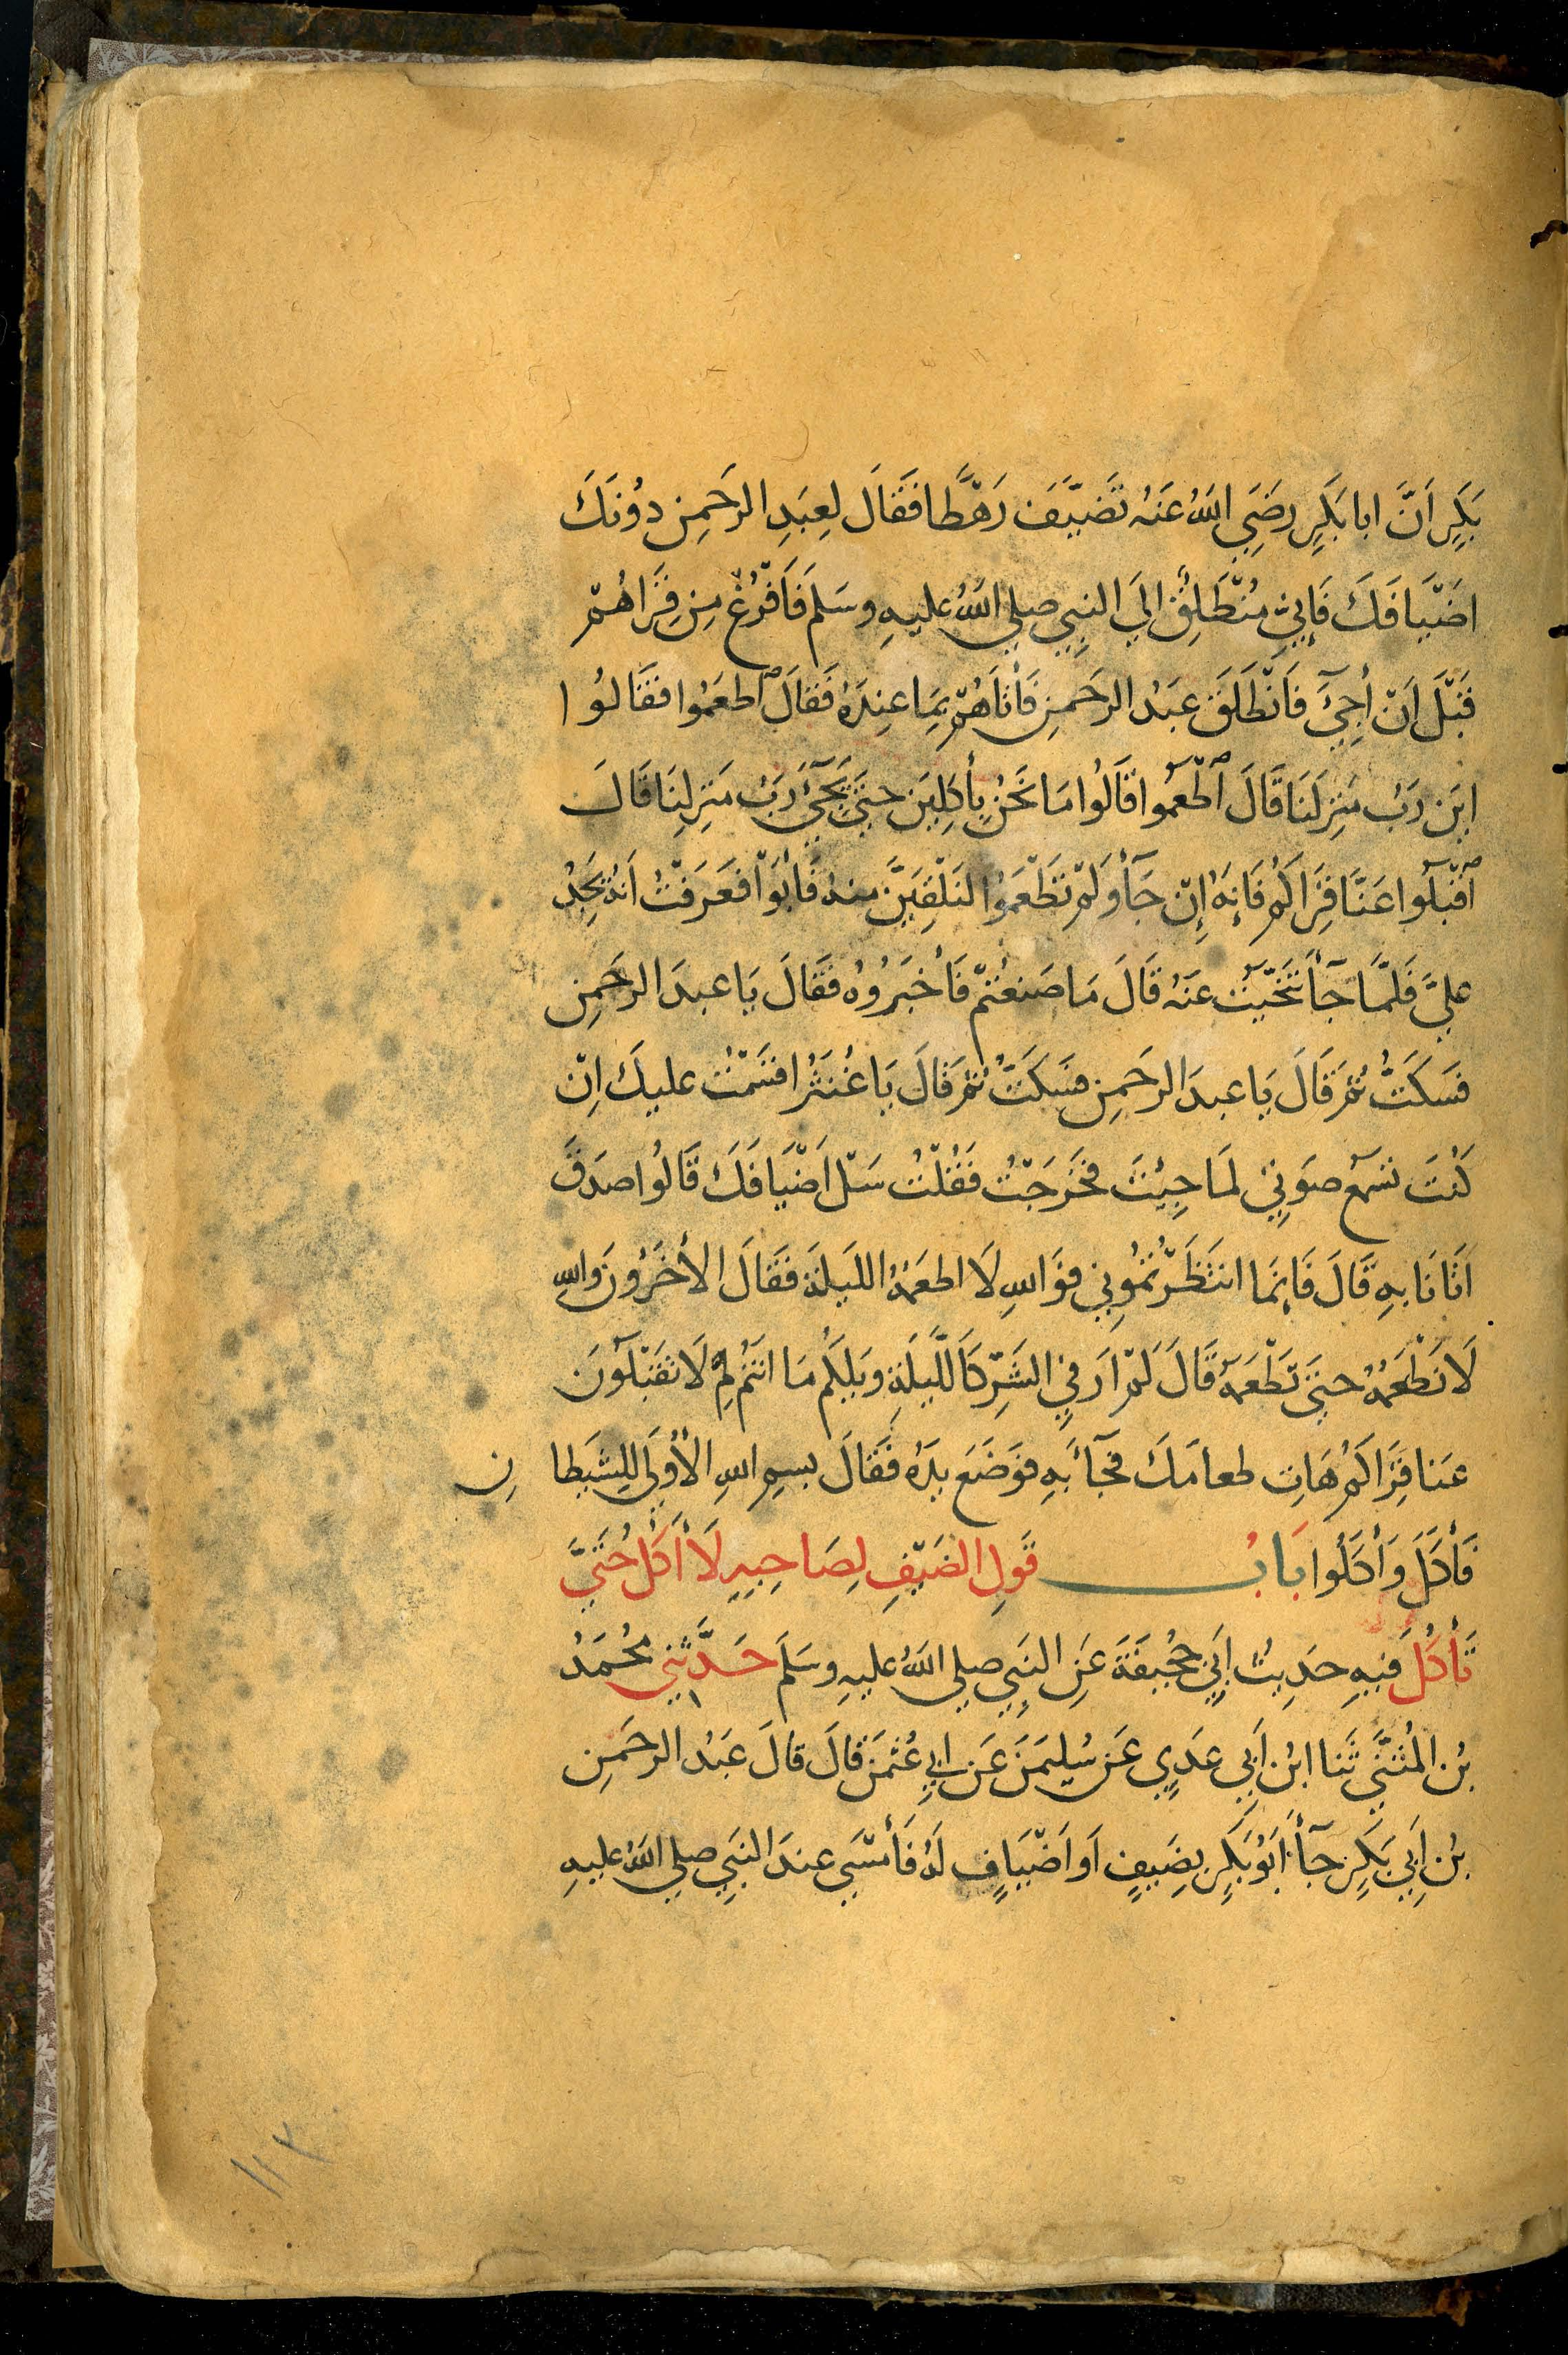 بَكْرٍ اَنَّ ابا بَكْرٍ رضِيَ اللهُ عَنْهُ تَضَيَّفَ رَهْطًا فَقَالَ لِعَبْدِ الرحَمنِ دُوْنَكَ
اضْيَافَكَ فَاِنِّي مُنْطَلِقٌ اِلَي النبِيِ صلي اللهُ عليهِ وسَلمَ فَافْرُغْ مِن قِرَاهُمْ
قَبْلَ اَنْ أجِيْءَ فَانْطَلَقَ عَبْدُ الرحَمنِ فَأتَاهُمْ بِمَا عِنْدَهُ فَقَالَ اطعَمُوا فقَالُوا
اينَ رَبُ مَنْزِلنَا قَالَ اطْعَمُوا قَالُوا مَا نَحْنُ بِأكِلِينَ حتَيَ يَجِيْءَ رَبُ مَنْزِلِنَا قَالَ
اقْبَلُوا عَنَّا قِرَاكُمْ فَاِنهُ اِنْ جَآءَ وَلَمْ تَطْعَمُوا لنَلْقِيَنَّ منهُ فَأبَوْا فعَرَفْتُ اَنهُ يَجِدُ
عليَّ فَلمَّا جَآءَ تَنَحَّيْتُ عَنْهُ قَالَ مَا صَنعْتُمْ فَأخْبَرُوهُ فقَالَ يَا عبدَ الرحَمنِ
فسَكَتُّ ثُمَ قَالَ يَا عبدَ الرحَمنِ فسَكَتُّ ثُمَ قَالَ يَا غُنْثَرُ اقسَمْتُ عليكَ اِنْ
كُنْتَ تسْمَعُ صَوتِيْ لمَا جِيْتَ فخَرَجْتُ فقُلْتُ سَلْ اَضْيَافَكَ قَالُوا صدَقَ
اتَانَا بهِ قَالَ فَاِنمَا انتَظَرْتمُوني فوَاللهِ لَا اطعَمُهُ الليلةَ فقَالَ الأخَرُونَ واللهِ
لَا نَطْعَمُهُ حتىَ تَطْعَمَهُ قَالَ لَمْ ارَ فيِ الشَرِّ كَاللَّيلَةِ ويْلكُم مَا انتُم لِمَ لَا تقبَلُونَ
عَنا قِرَاكُمْ هَاتِ طعامَكَ فجآءَ بهِ فوَضَعَ يدَهُ فقَالَ بسمِ اللهِ الأُوْلَي لِلشَيطانِ
فَأكَلَ وَأكَلُوا بَابُ قَولِ الضَيْفِ لِصَاحِبِهِ لَا أكُلُ حَتَيَّ
تَأكُلَ فيهِ حَدِيثُ اَبِي جُحَيفَةَ عَنِ النبِيِ صلي اللهُ عليهِ وسَلمَ حَدَّثنِي مُحمَدُ
بْنُ المُثَنَّي ثَنا ابْنُ اَبِي عَدِيٍ عَن سُليمَنَ عَن ابِي عُثمَنَ قَالَ قَالَ عَبْدُ الرحَمنِ
بْنُ اَبِي بَكْرٍ جَآءَ ابُو بَكْرٍ بِضَيفٍ اَو اَضْيَافٍ لهُ فَأمْسَي عندَ النبِيِ صلي اللهُ عليهِ
١١٢